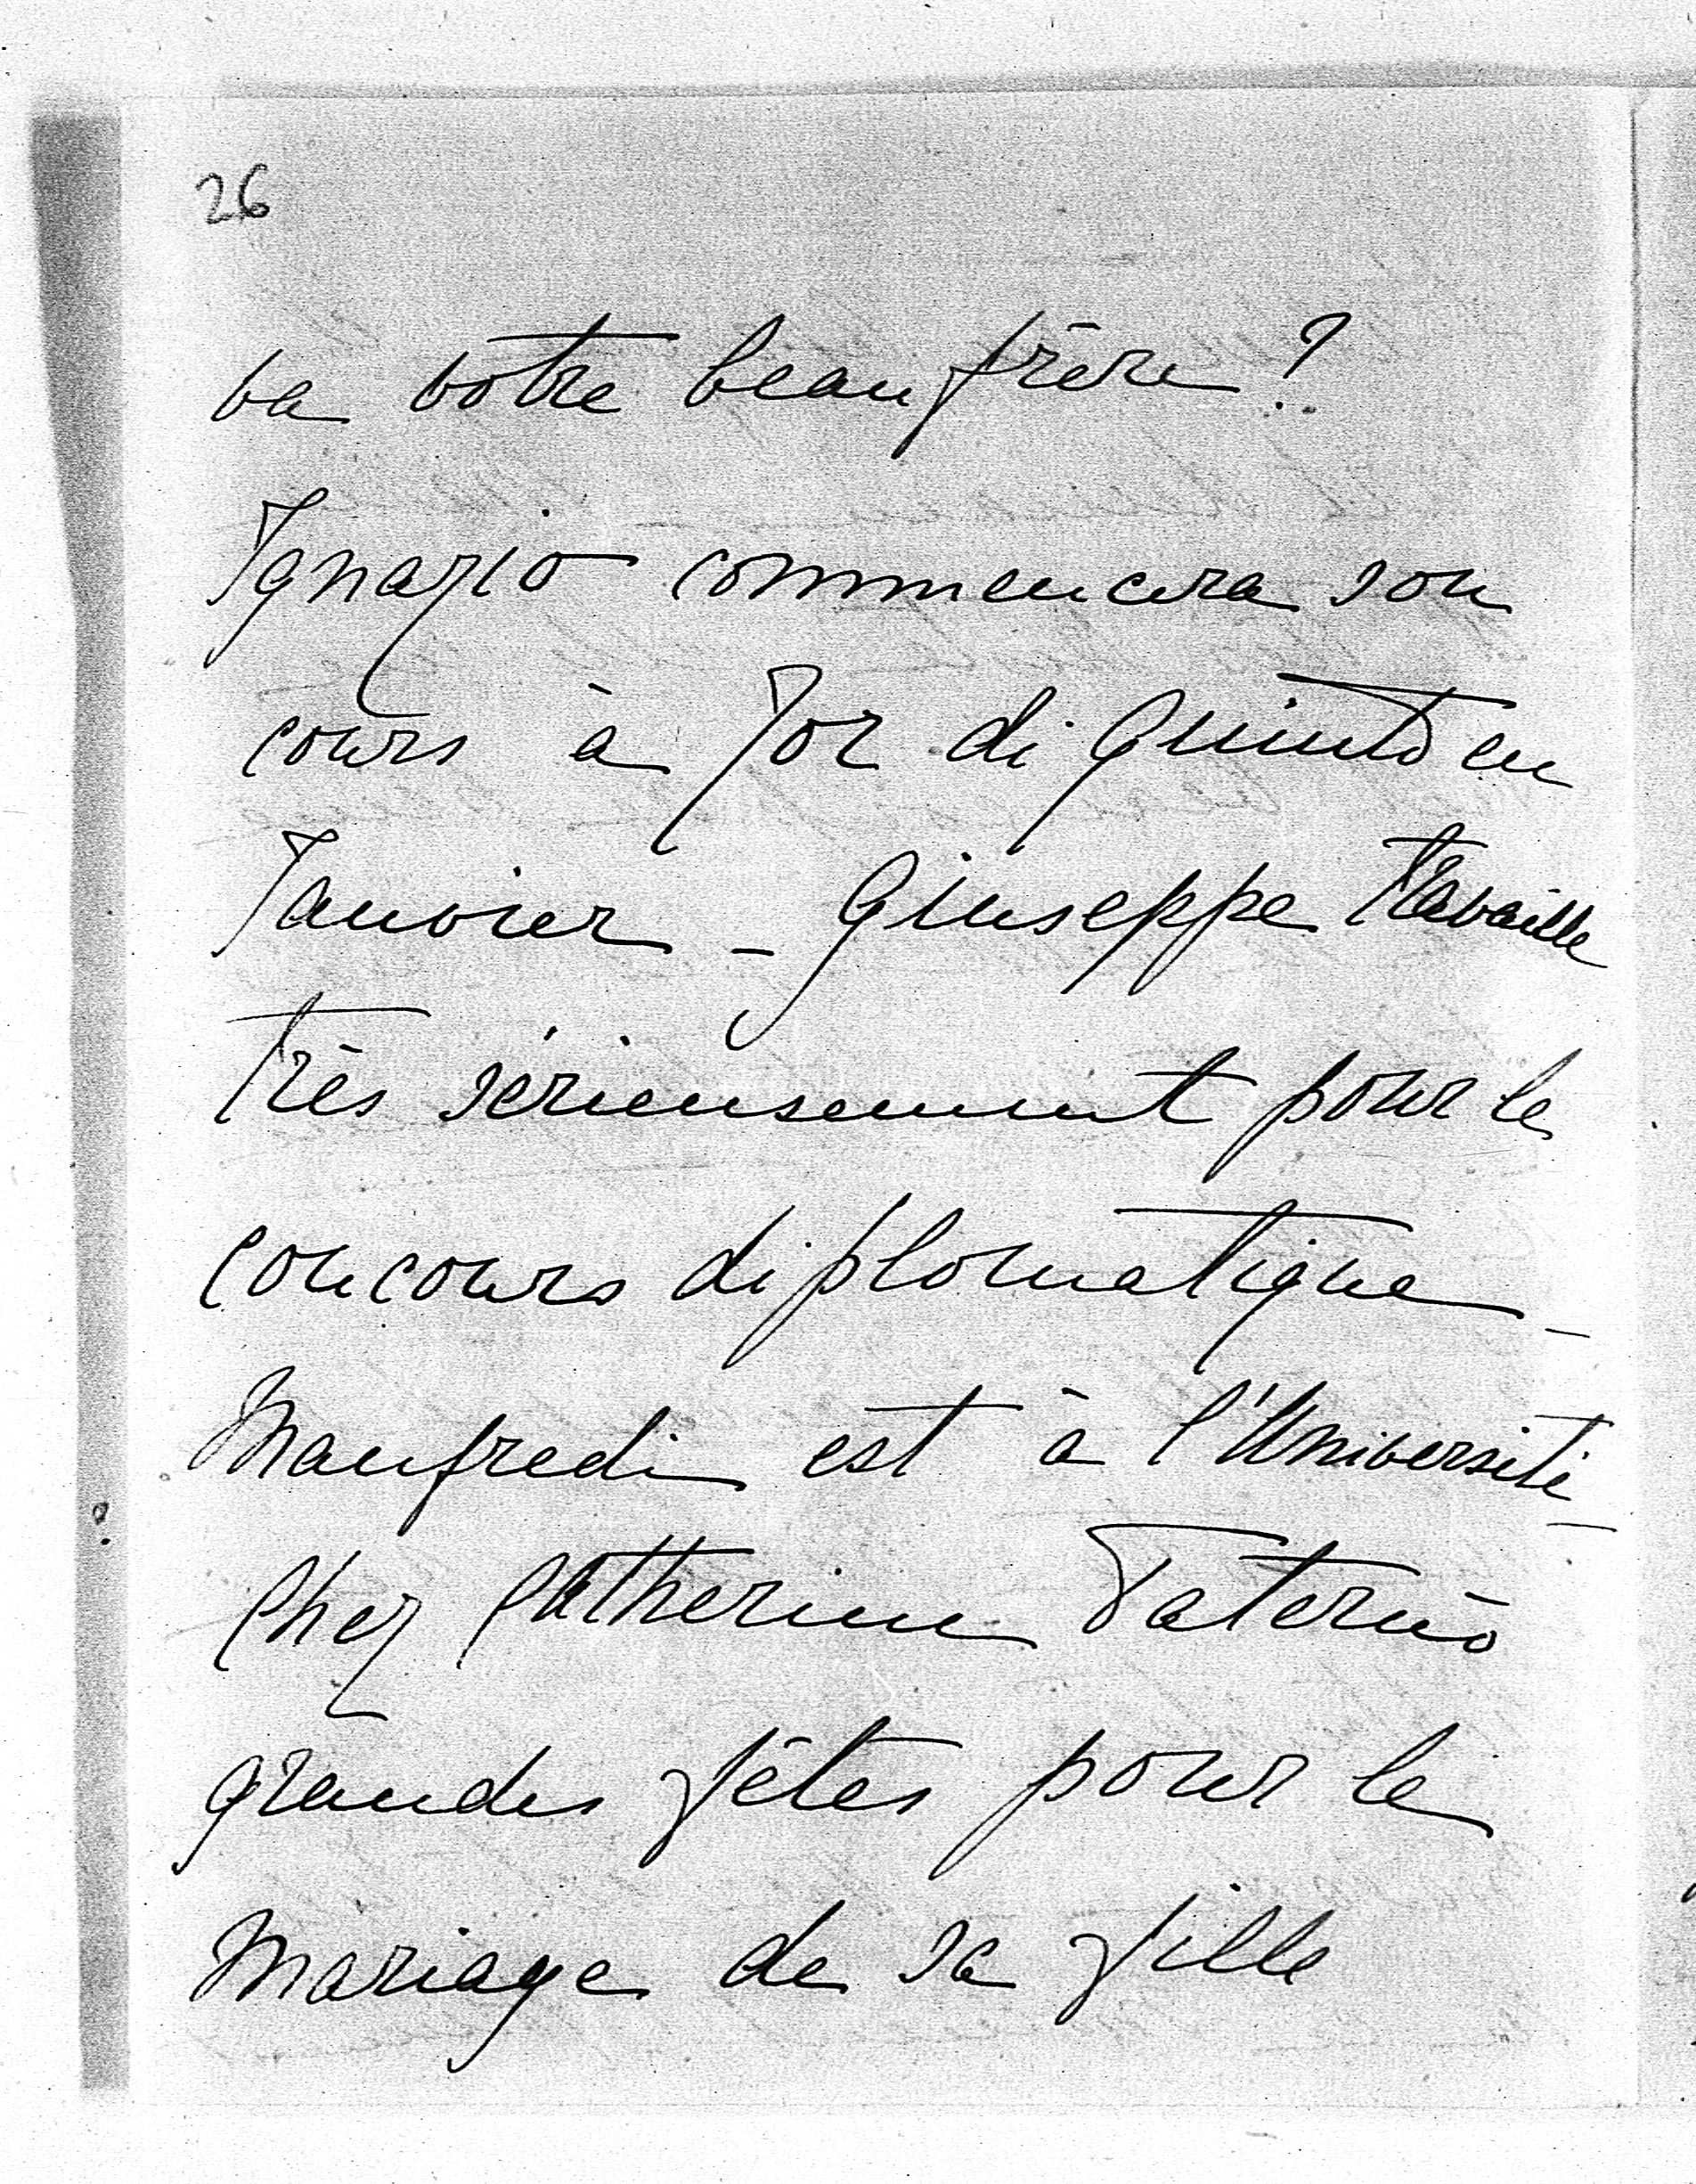 26
va votre beau frère?
Ignazio commencera son
cours à Tor di Quinto en
Janvier _ Giuseppe travaille
très sérieusement pour le
concours diplomatique _
Manfredi est à l'Université _
Chez Catherine Paternò
grandes fêtes pour le
mariage de sa fille